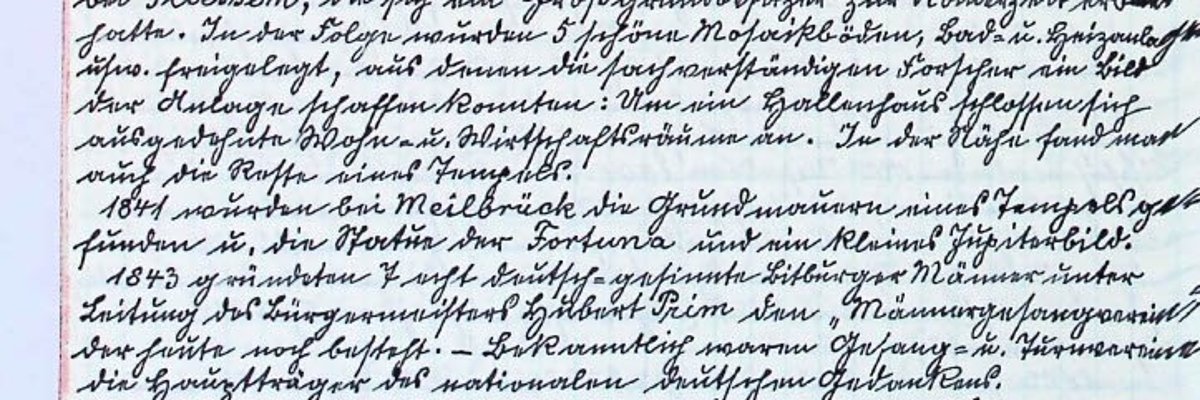 sich ein Großgrundbesitzer zur Römerzeit erbaut
hatte. In der Folge wurden 5 schöne Mosaikböden, Bad- u. Heizanlagen
usw. freigelegt, aus denen die sachverständigen Forscher ein Bild
der Anlage schaffen konnten: Um ein Hallenhaus schlossen sich
ausgedehnte Wohn- u. Wirtschaftsräume an. In der Nähe fand man
auch die Reste eines Tempels.
1841 wurden bei Meilbrück die Grundmauern eines Tempels ge-
funden u. die Statue der Fortuna und ein kleines Jupiterbild.
1843 gründeten 7 echt deutsch-gesinnte Bitburger Männer unter
Leitung des Bürgermeisters Hubert Prim den „Männergesangverein"
der heute noch besteht. – Bekanntlich waren Gesang- u. Turnvereine
die Hauptträger des nationalen deutschen Gedankens.